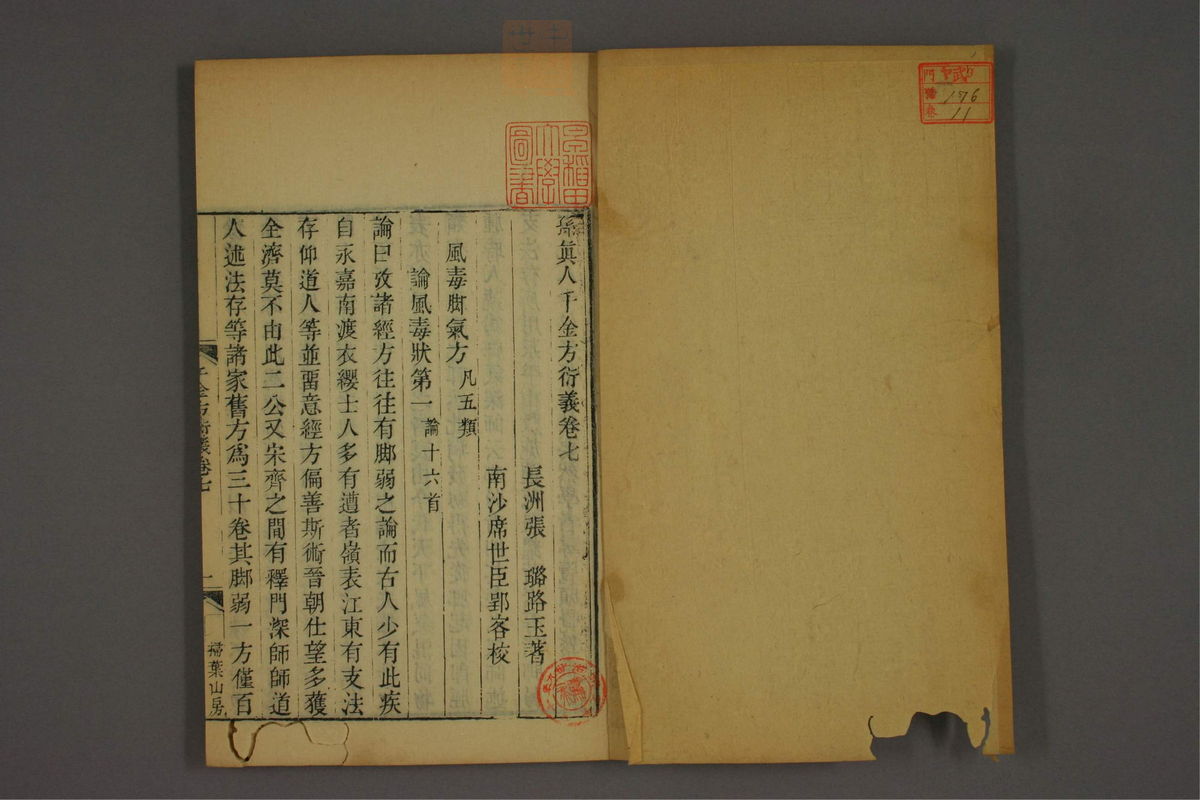 孫眞人千金方衍義卷七
長洲張　璐路玉著
南沙席世臣郢客校
風毒脚氣方凡五類
論風毒狀第一論十六首
論曰攷諸經方往往有脚弱之論而古人少有此疾
自永嘉南渡衣纓士人多有遭者嶺表江東有支法
存仰道人等並畱意經方偏善斯術晉朝仕望多獲
全濟莫不由此二公又宋齊之間有釋門深師師道
人述法存等諸家舊方爲三十卷其脚弱一方僅百
千金方衍義卷七
一
掃葉山房
早稻田
大學
圖書
門
號
卷
176
11